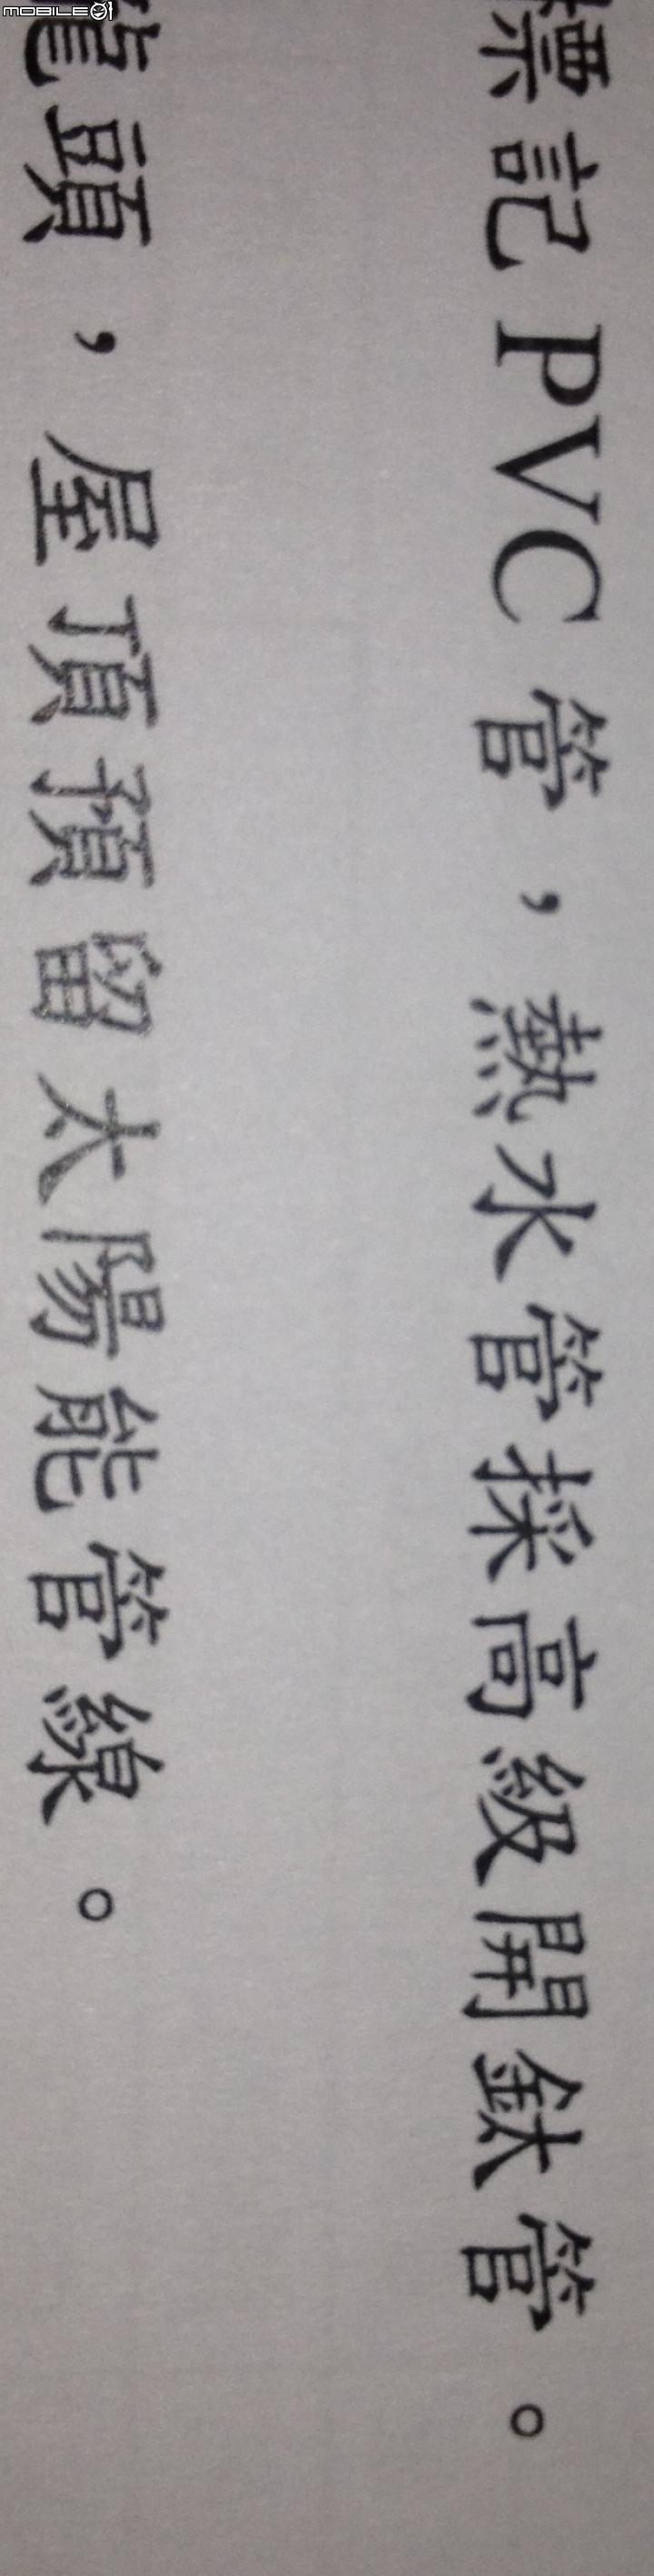 標記 PVC 管，熱水管採高級開鈦管。
龍頭，屋頂預留太陽能管線。
MOBILE01